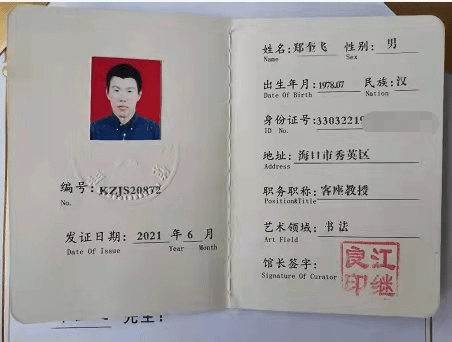 编号: KZJS20872
No.
发证日期: 2021 年 6 月
Date Of Issue Year Month
姓名: 郑奎飞 性别: 男
Name Sex
出生年月: 1978.07 民族: 汉
Date Of Birth Nation
身份证号: 33032219
ID No.
地址: 海口市秀英区
Address
职务职称: 客座教授
Position&Title
艺术领域: 书法
Art Field
馆长签字:
Signature Of Curator
江继良印
先生: